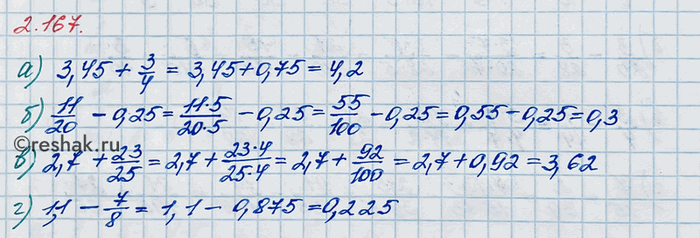 2.167.
а) 3,45 + 3/4 = 3,45 + 0,75 = 4,2
б) 11/20 - 0,25 = 11·5/20·5 - 0,25 = 55/100 - 0,25 = 0,55 - 0,25 = 0,3
©reshak.ru
в) 2,7 + 23/25 = 2,7 + 23·4/25·4 = 2,7 + 92/100 = 2,7 + 0,92 = 3,62
г) 1,1 - 7/8 = 1,1 - 0,875 = 0,225